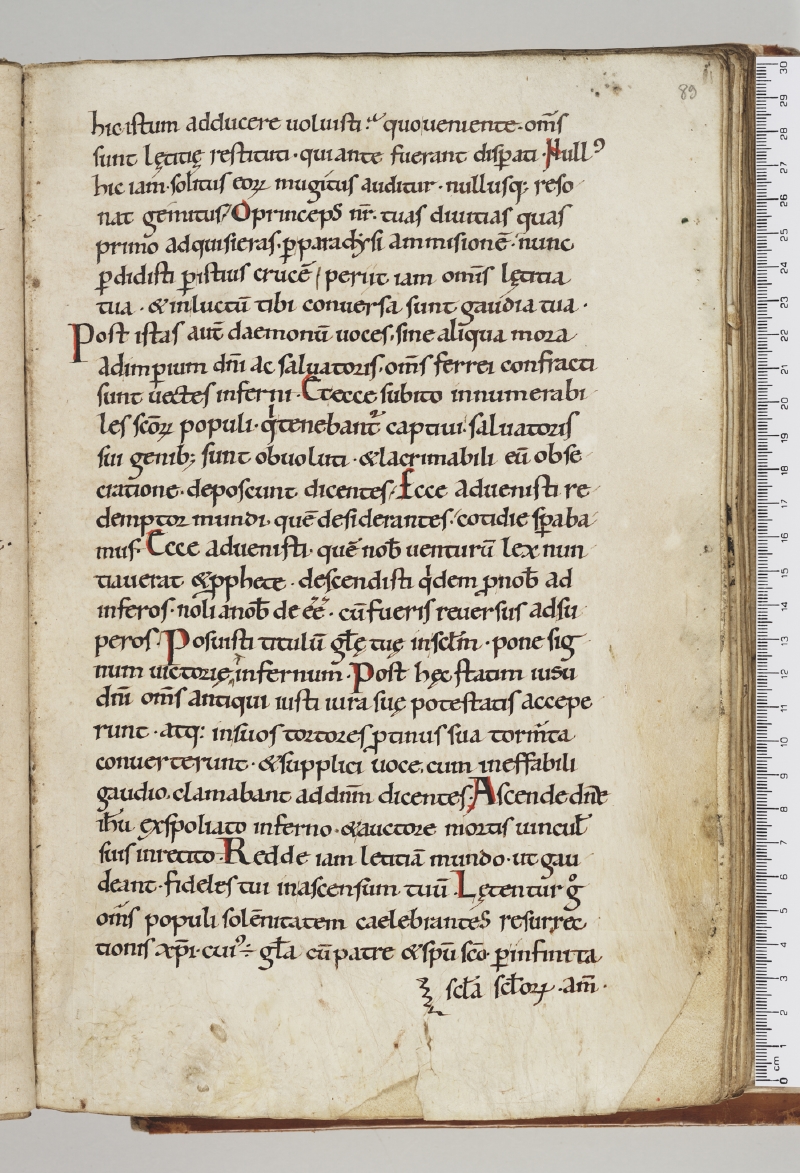 89
hic istum adducere uoluisti· quo ueniente· om̄s
sunt lętitię restituti· qui ante fuerant disꝑati· Null᷒
hic iam· solitus eoꝝ mugitus auditur· nullusq; reso
nat gemitus; O princeps nr̄· tuas diuitias quas
primo adquisieras· ꝑ paradysi ammisionē· nunc
ꝑdidisti ꝑ istius crucē/ periit iam om̄s lętitia
tua· & in luctū tibi conuersa sunt gaudia tua·
Post istas aut̄ daemonū uoces· sine aliqua mora
ad imꝑium dn̄i ac saluatoris· om̄s ferrei confracti
sunt uectes inferni· Et ecce subito innumerabi
les sc̄oꝝ populi· q̇ tenebant᷑ captiui· saluatoris
sui genib; sunt obuoluti· & lacrimabili eū obse
cratione· deposcunt dicentes/ Ecce aduenisti re
demptor mundi· quē desiderantes· cotidie sꝑaba
mus· Ecce aduenisti· quē nob̄ uenturū lex nun
tiauerat & ꝓphete· descendisti q̇dem ꝓ nob̄ ad
inferos· noli a nob̄ de eē̄· cū fueris reuersus ad su
peros· Posuisti titulū gl̄ę tuę in scl̄m· pone sig
num uictorię, in infernum· Post hęc statim iusu
dn̄i om̄s antiqui iusti iura suę potestatis accepe
runt· atq; in suos tortores ꝓtinus sua torm̄ta
conuerterunt· & supplici uoce, cum ineffabili
gaudio, clamabant ad dn̄m dicentes; Ascende dn̄e
ih̄u exspoliato inferno· & auctore mortis uincul̄
suis inretito· Redde iam letitiā mundo· ut gau
deant· fideles tui in ascensum tuū· Lętentur gͦ
om̄s populi solēnitatem caelebrantes resurrec
tionis xp̄i· cui᷒ ÷ gl̄a cū patre & sp̄u sc̄o· ꝑ infinita
scl̄a scl̄oꝝ· am̄·
30
29
28
27
26
25
24
23
22
21
20
19
18
17
16
15
14
13
12
11
10
9
8
7
6
5
4
3
2
1
cm
0